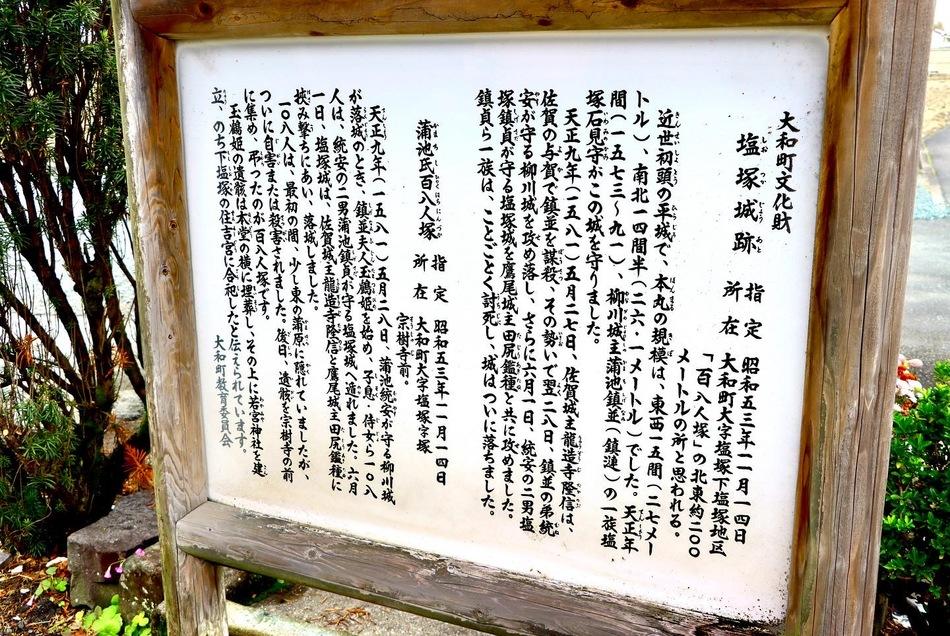 大和町文化財
塩塚城跡
指定 昭和五三年一一月一四日
所在 大和町大字塩塚下塩塚地区
「百八人塚」の北東約二〇〇
メートルの所と思われる。
近世初頭の平城で、本丸の規模は、東西一五間(二七メー
トル)、南北一四間半(二六・一メートル)でした。天正年
間(一五七三〜九一)、柳川城主蒲池鎮並(鎮漣)の一族塩
塚石見守がこの城を守りました。
天正九年(一五八一)五月二七日、佐賀城主龍造寺隆信は、
佐賀の与賀で鎮並を謀殺、その勢いで翌二八日、鎮並の弟統
安が守る柳川城を攻め落し、さらに六月一日、統安の二男塩
塚鎮貞が守る塩塚城を鷹尾城主田尻鑑種と共に攻めました。
鎮貞ら一族は、ことごとく討死し、城はついに落ちました。
蒲池氏百八人塚
指定 昭和五三年一一月一四日
所在 大和町大字塩塚字塚
宗樹寺前。
天正九年(一五八一)五月二八日、蒲池統安が守る柳川城
が落城のとき、鎮並夫人玉鶴姫を始め、子息、侍女ら一〇八
人は、統安の二男蒲池鎮貞が守る塩塚城へ逃れました。六月
一日、塩塚城は、佐賀城主龍造寺隆信と鷹尾城主田尻鑑種に
挟み撃ちにあい、落城しました。
一〇八人は、最初の間、少し東の蒲原に隠れていましたが、
ついに自害または殺害されました。後日、遺骸を宗樹寺の前
に集め、弔ったのが百八人塚です。
玉鶴姫の遺骸は本堂の横に埋葬し、その上に若宮神社を建
立、のち下塩塚の住吉宮に合祀したと伝えられています。
大和町教育委員会